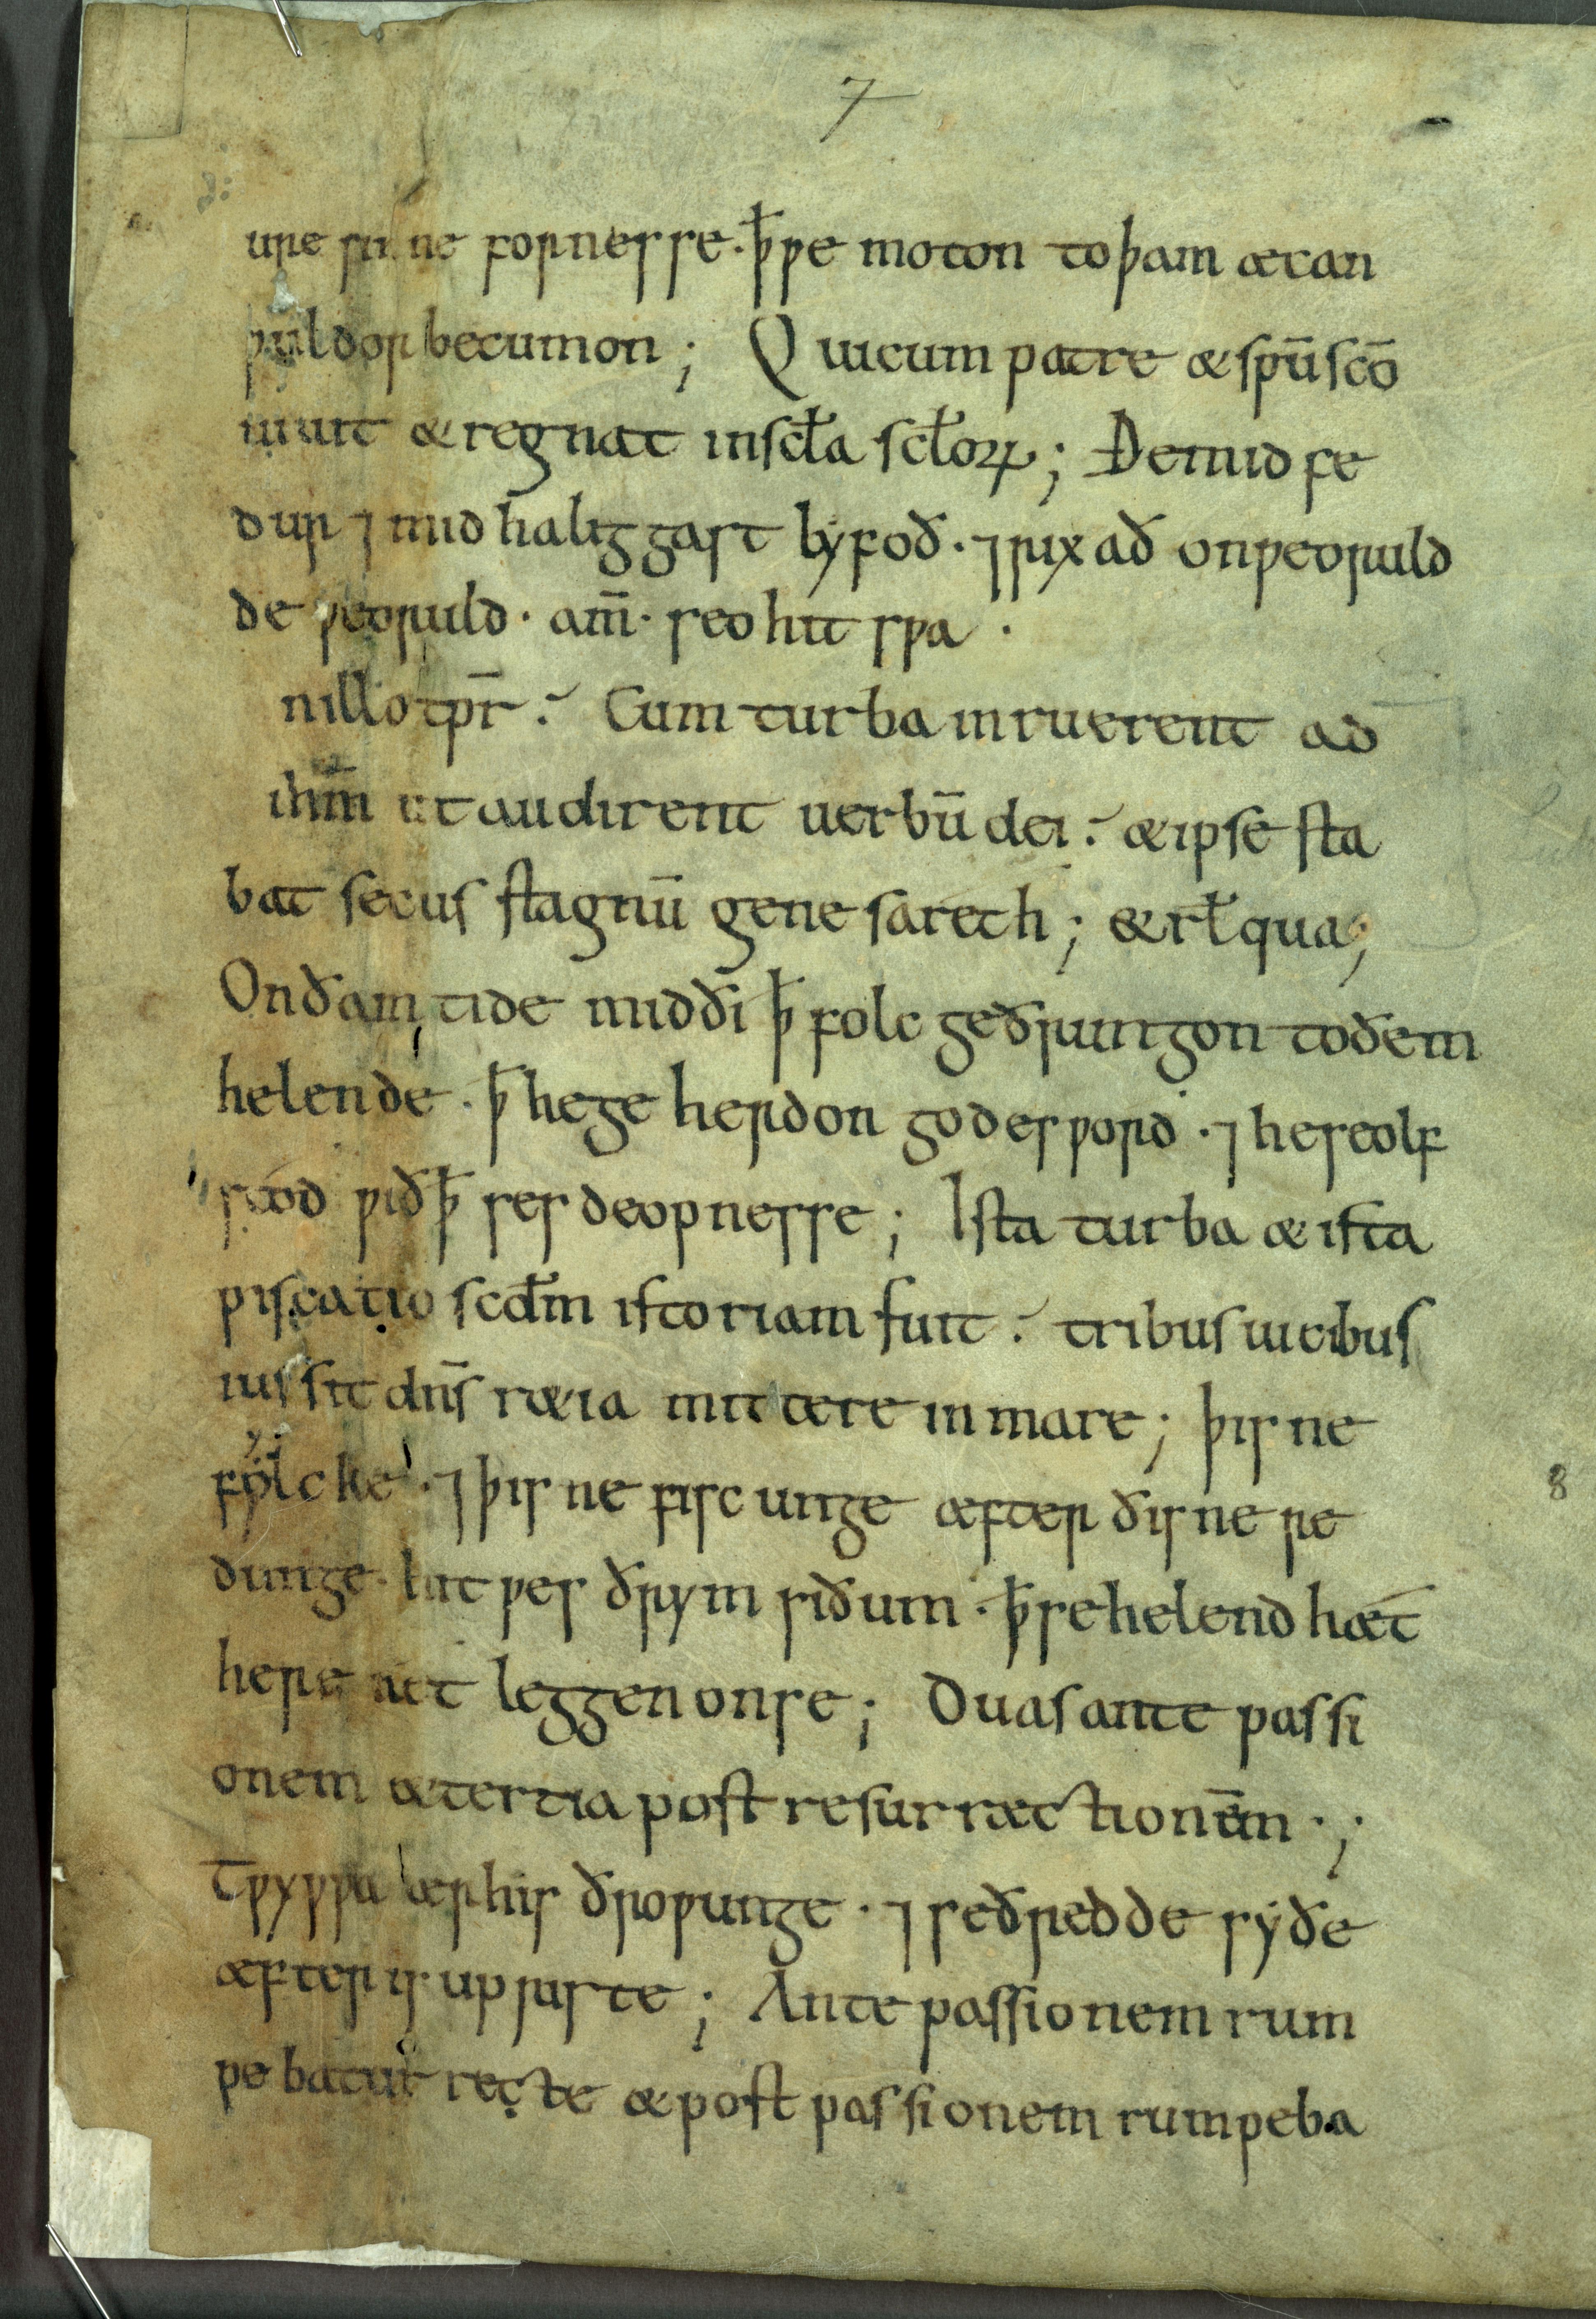 7
ure sinne fornesse · ꝥ ƿe moton to þam ætan
ƿuldor becumon ; Qui cum patre & spū scō
uiuit & regnat in scła scłoꝝ ; Ðe mid fe
dur ⁊ mid halig gast lyfoð · ⁊ rixað on ƿeoruld
de ƿeoruld · am̄ · seo hit sƿa ·
n illo tpr̄ · Cum turba inruerent ad
ihm̄ ut audirent uerbū dei · & ipse sta
bat secus stagnū genesareth ; & rłqua ;
On ðam tide middi ꝥ folc geðrungon to ðem
helende · ꝥ he geherdon godes ƿord · ⁊ he seolf
stod ƿið ꝥ ses deopnesse ; Ista turba & ista
piscatio scdm̄ istoriam fuit · tribus uicibus
iussit dns̄ r&ia mittere in mare ; þisne
fylcke · ⁊ þisne fiscunge æfter ðisne re
dunge · hit ƿes ðrym siðum · ꝥ se helend hæt
here net leggen on se ; Duas ante passi
onem & tertia post resurræctionēm · ;
Tƿyƿƿa ær his ðroƿunge · ⁊ se ðredde syðe
æfter is upriste ; Ante passionem rum
pebatur recte & post passionem rumpeba
8